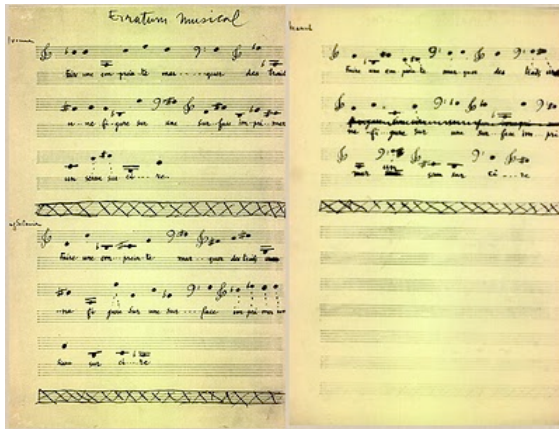 Erratum Musical
Yvonne
Faire une em-prein-te mar---quer des traits
u--ne fi-gure sur une sur-face im-pri-mer
un sceau sur ci---re
Magdeleine
Faire une em...prein-te mar---quer des traits une
ne fi gure sur une sur...face im-pri-mer un
sceau sur ci...re
Marcel
Faire une em prein te mar que des traits une
ne fi-gure sur une sur face im...pri
mer un sceau sur ci---re